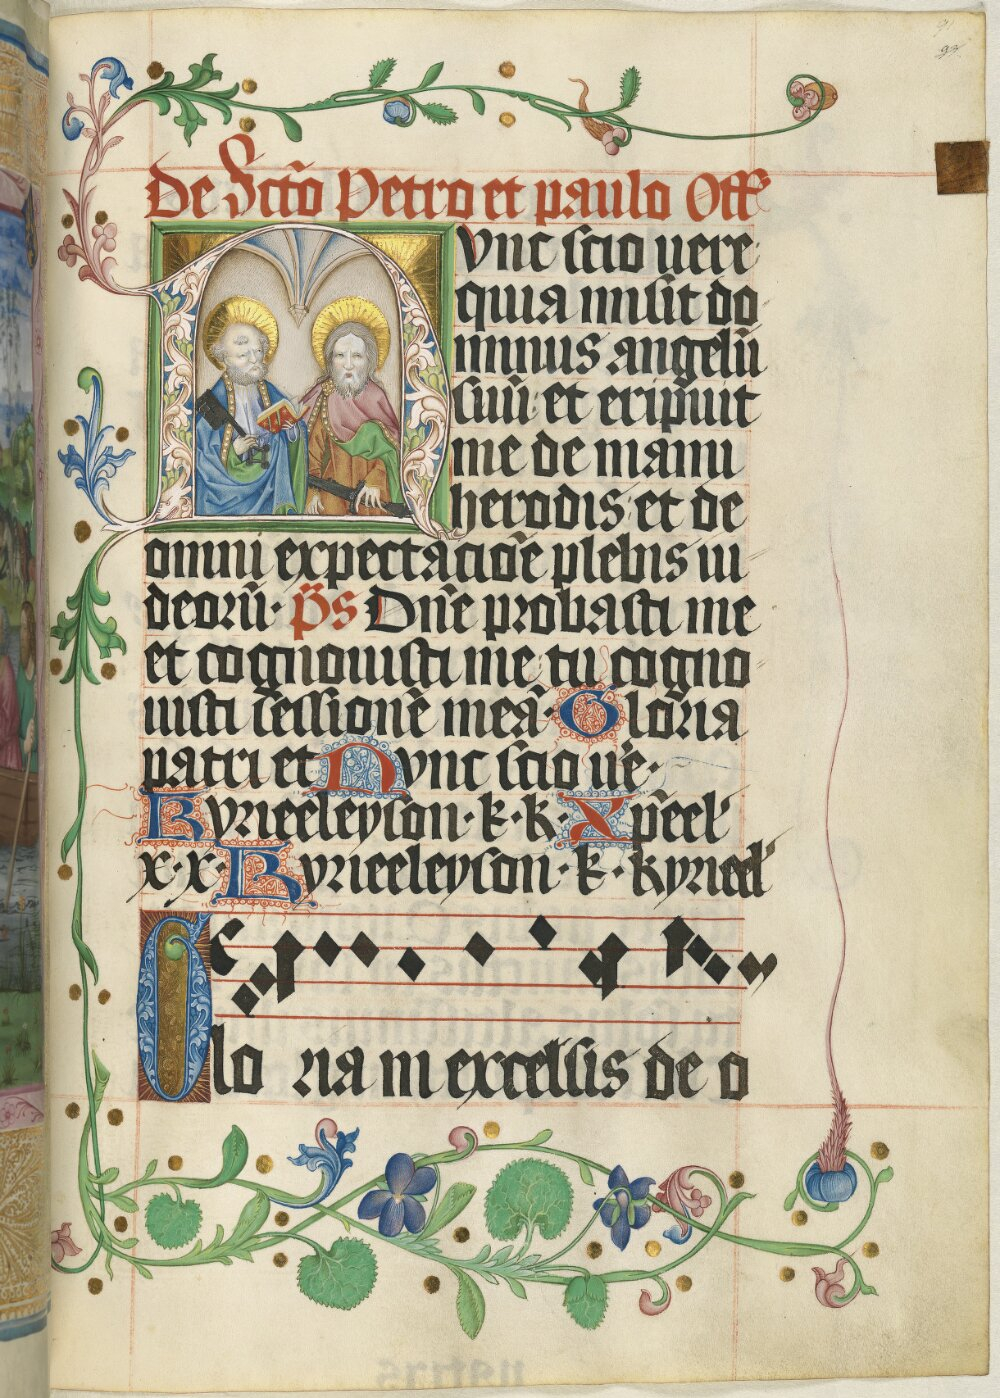 De Scto Petro et paulo Off
Nunc scio uere
quia misit do
minus angelū
suū et eripuit
me de manu
herodis et de
omni expectaciōe plebis iu
deorū. p̄s Dn̄e probasti me
et cognouisti me tu cogno
uisti sessionē meā. Gloria
patri et Nunc scio ue.
Kyrieeleyson. k. k. Xp̄eel
x. x. Kyrieeleyson. k. kyrieel
Glo ria in excelsis de o